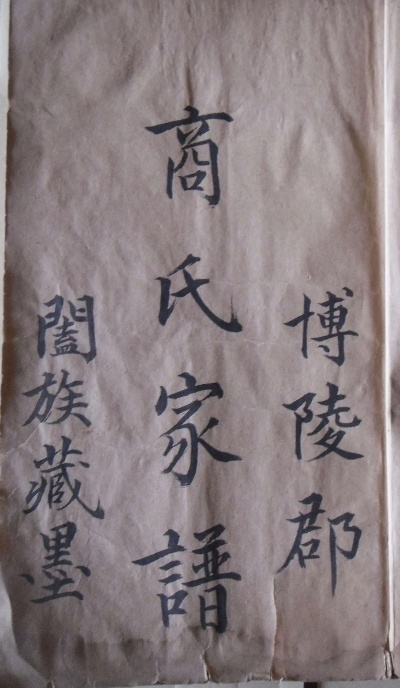 博陵郡
商氏家譜
闔族藏墨